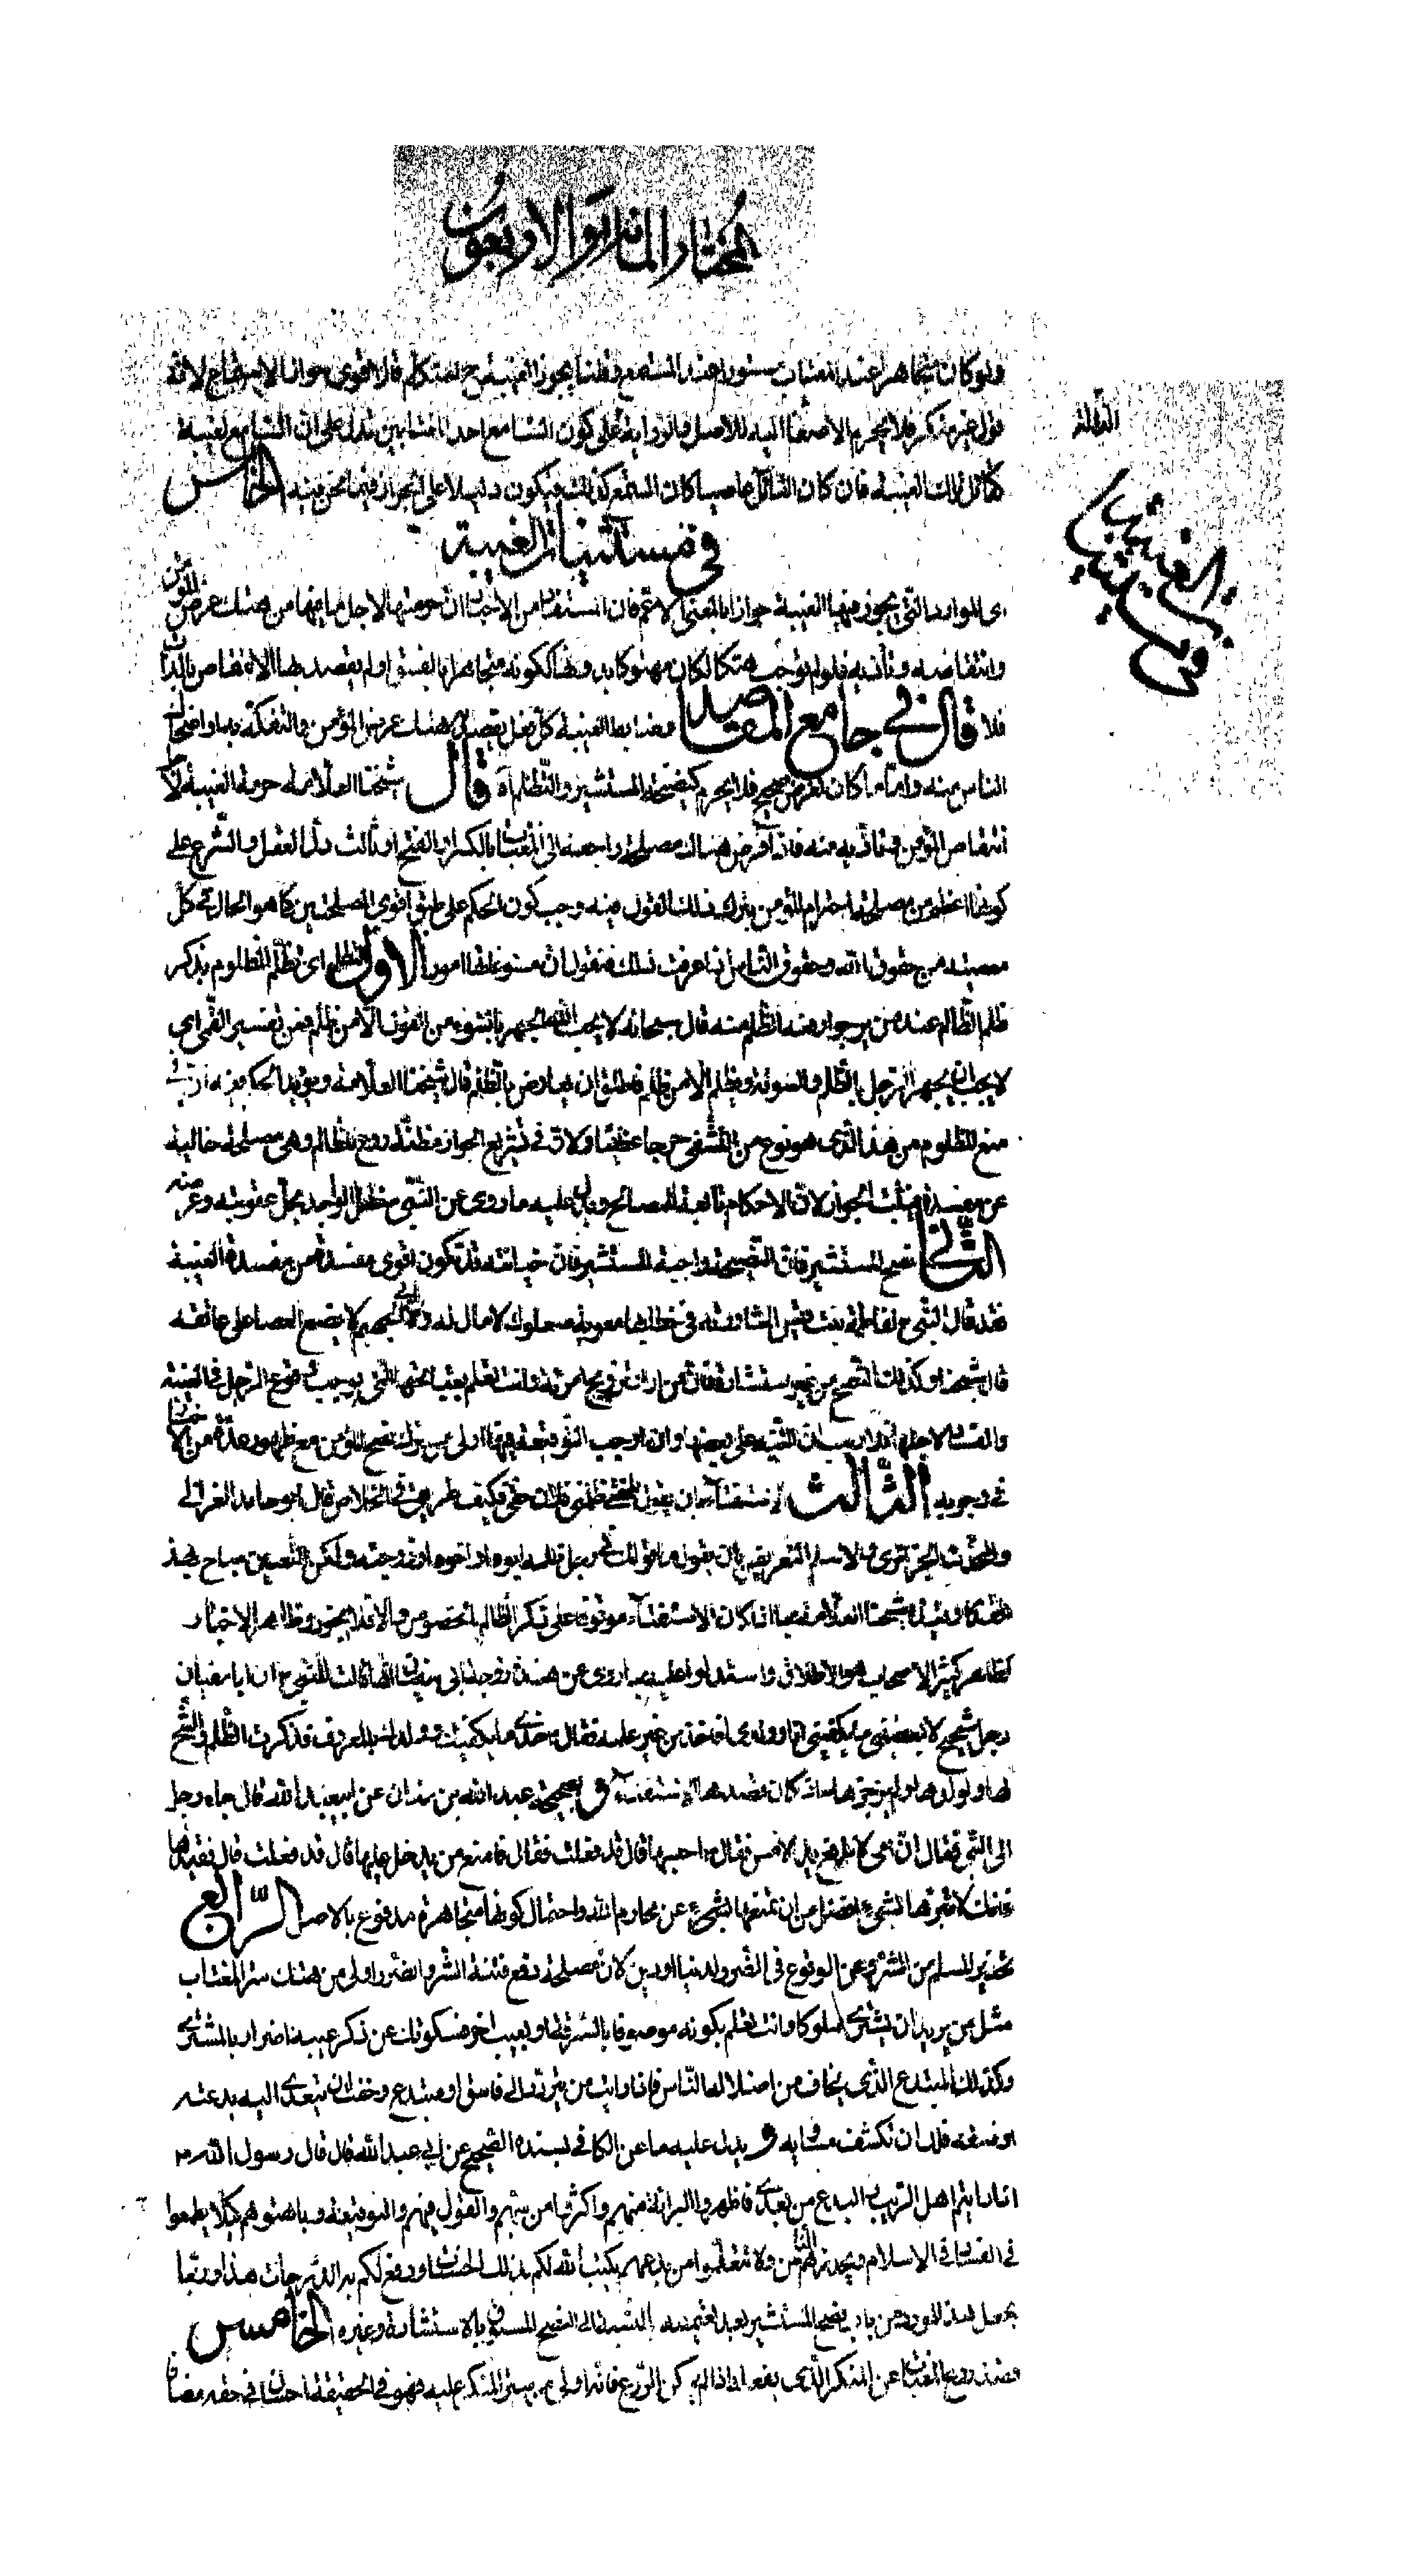 المختار المائة والاربعون
ولو كان متجاهرا عند المغتاب مستورا عند المستمع وقلنا بجواز الغيبة ح للمتكلم فالاقوى جواز الاستماع لانه
قول غير منكر فلا يحرم الاصغاء اليه للاصل والرواية على كون السامع احد المغتابين تدل على ان السامع لغيبة
كقائل تلك الغيبة فان كان القائل عاصيا كان المستمع كذلك فيكون دليلا على الجواز فيما نحن فيه الخامس
في مستثنيات الغيبة
اى الموارد التى يجوز فيها الغيبة جوازا بالمعنى الاعم فان المستفاد من الاخبار ان حرمتها لاجل ما فيها من هتك عرض المؤمن
وانتقاصه وتأذيه فلو لم يوجب هتكا لكان مهتوكا بدونها لكونه متجاهرا بالفسق او لم يقصد بها الانتقاص بالذات
فلا قال في جامع المقاصد وضابط الغيبة كل فعل يقصد به هتك عرض المؤمن والتفكه به او اضحاك
الناس منه واما ما كان لغرض صحيح فلا يحرم كنصيحة المستشير والتظلم آه قال شيخنا العلامة حرمة الغيبة لاجل
انتقاص المؤمن وتأذيه منه فاذا فرض هناك مصلحة راجعة الى المغتاب بالكسر او بالفتح او ثالث دل العقل والشرع على
كونها اعظم من مصلحة احترام المؤمن بترك ذلك القول فيه وجب كون الحكم على طبق اقوى المصلحتين كما هو الحال في كل
معصية من حقوق الله وحقوق الناس اذا عرفت ذلك فنقول ان مسوغاتها امور الاول التظلم اى تظلم المظلوم بذكر
ظلم الظالم عند من يرجوا رفعه الظلم منه قال سبحانه لا يحب الله الجهر بالسوء من القول الا من ظلم فعن تفسير القمى اى
لا يحب ان يجهر الرجل بالظلم والسوء ويظلم الا من ظلم فاطلق ان يعارض بالظلم قال شيخنا العلامة ويؤيد الحكم فيه ان في
منع المظلوم من هذا الذى هو نوع من التشفى حرجا عظيما ولان في تشريع الجواز مظنة ردع للظالم وهى مصلحة خالية
عن مفسدة فيثبت الجواز لان الاحكام تابعة للمصالح ويدل عليه ما روى عن النبى ص مطل الواجد يحل عقوبته وعرضه
الثانى نصح المستشير فان النصيحة واجبة للمستشير فان خيانته قد تكون اقوى مفسدة من مفسدة الغيبة
فقد قال النبى ص لفاطمة بنت قيس المشاورة في خطابها معوية صعلوك لا مال له وابو الجهم لا يضع العصا على عاتقه
قال شيخنا وكذلك النصح من غير استشارة فان من اراد تزويج امرئة وانت تعلم بقبايحها التى يوجب وقوع الرجل في الغيبة
والفساد لاجلها فلا ريب ان التنبيه على بعضها وان اوجب الوقيعة فيها اولى من ترك نصح المؤمن مع ظهور عدة من الاخبار
في وجوبه الثالث الاستفتاء بان يقول للمفتى ظلمنى فلان حقى فكيف طريقى في الخلاص قال ابو حامد الغزالى
والمحدث الجزائرى والاسلم التعريض بان يقول ما قولك في رجل ظلمه ابوه او اخوه او زوجته ولكن التعيين مباح بهذا
القدر وقيده شيخنا العلامة بما اذا كان الاستفتاء موقوفا على ذكر الظالم بالخصوص والا فلا يجوز وظاهر الاخبار
كظاهر كثير الاصحاب هو الاطلاق واستدلوا عليه بما روى عن هند زوجة ابى سفيان انها قالت للنبى ص ان ابا سفيان
رجل شحيح لا يعطينى ما يكفينى انا وولدى افاخذ من غير علمه فقال خذى ما يكفيك وولدك بالمعروف فذكرت الظلم والشح
لها ولولدها ولم يزجرها اذ كان قصدها الاستفتاء وصحيحة عبد الله بن سنان عن ابى عبد الله قال جاء رجل
الى النبى فقال ان امى لا تدفع يد لامس فقال احبسها قال قد فعلت فقال فامنع من يدخل عليها قال قد فعلت قال فقيدها
فانك لا تبرها بشىء افضل من ان تمنعها عن محارم الله واحتمال كونها متجاهرة مدفوع بالاصل الرابع
تحذير المسلم من الشر وعن الوقوع في الضرر لدنيا او دين لان مصلحة دفع فتنة الشر والضرر اولى من هتك ستر المغتاب
مثل من يريد ان يشترى مملوكا وانت تعلم بكونه موصوفا بالسرقة او بعيب اخر فسكوتك عن ذكر عيبه اضرار بالمشترى
وكذلك المبتدع الذى يخاف من اضلاله الناس فاذا رايت من يتردد الى فاسق او مبتدع وخفت ان يتعدى اليه بدعته
او فسقه فلك ان تكشف مساويه ويدل عليه ما عن الكافى بسنده الصحيح عن ابى عبد الله قال قال رسول الله ص
اذا رايتم اهل الريب والبدع من بعدى فاظهروا البرائة منهم واكثروا من سبهم والقول فيهم والوقيعة وباهتوهم كيلا يطمعوا
في الفساد في الاسلام ويحذرهم الناس ولا تتعلموا من بدعهم يكتب الله لكم بذلك الحسنات ويرفع لكم به الدرجات هذا وربما
يجعل هذا المورد من باب نصح المستشير بعد تعميمه بالنسبة الى النصح المسبوق بالاستشارة وغيره الخامس
قصد ردع المغتاب عن المنكر الذى يفعله اذا لم يمكن الردع فانه اولى من ستر المنكر عليه فهو في الحقيقة احسان في حقه مضافا
الغيبة